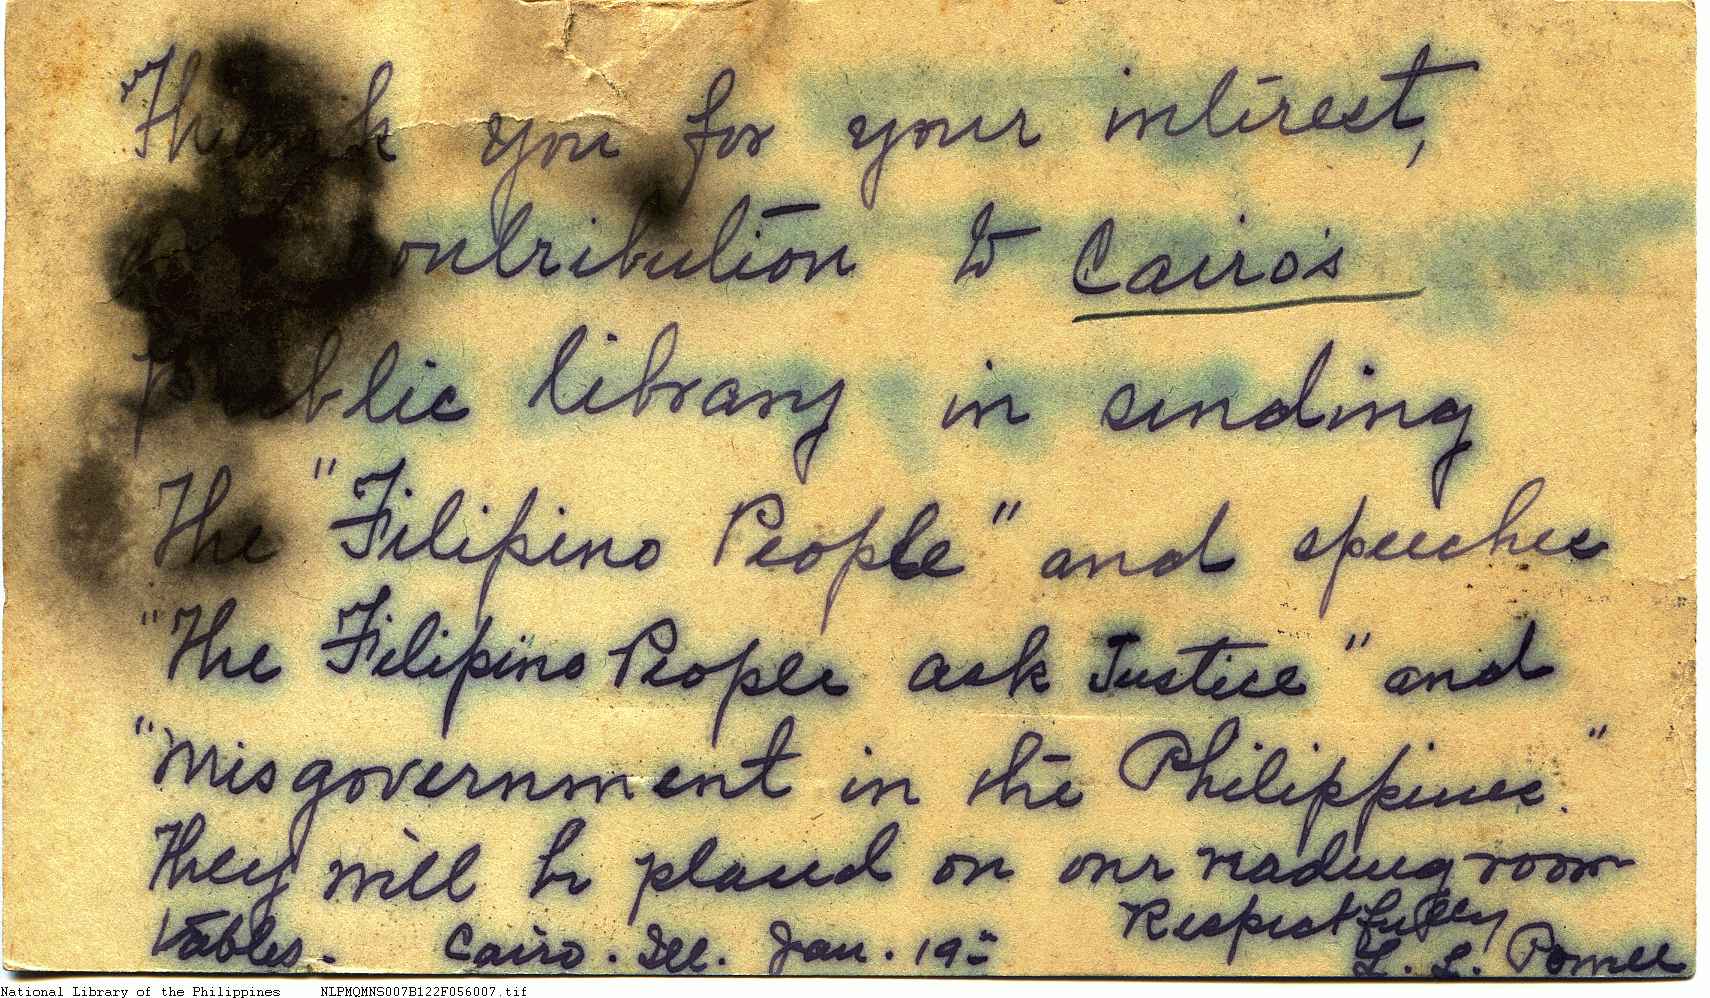 Thank you for your interest,
contribution to Cairo's
Public library in sending
The "Filipino People" and speeches
"The Filipino People ask Justice" and
"Misgovernment in the Philippines."
They will be placed on our reading room
tables. Cairo. Ill. Jan. 19= Respectfully
L. L. Powell
National Library of the Philippines NLPMQMNS007B122F056007.tif